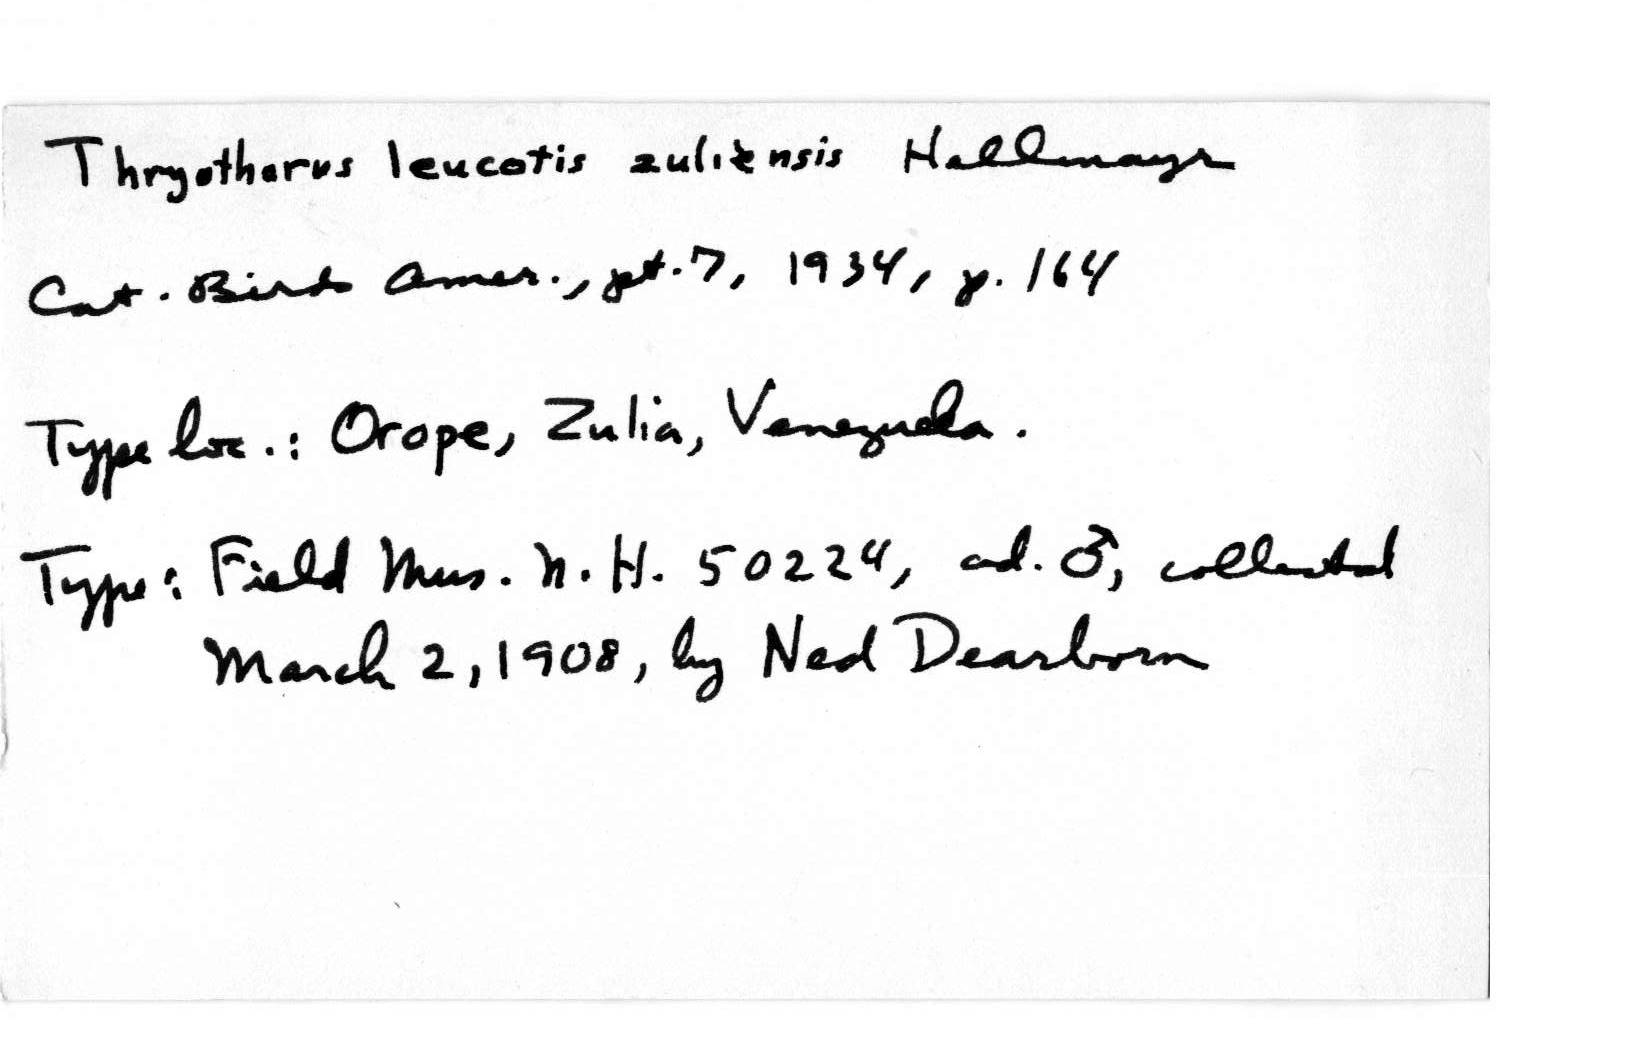 Thryothorus leucotis zuliensis Hellmayr
Cat. Birds Amer., pt. 7, 1934, p. 164
Type loc.: Orope, Zulia, Venezuela.
Type: Field Mus. N. H. 50224, ad. ♂, collected
March 2, 1908, by Ned Dearborn